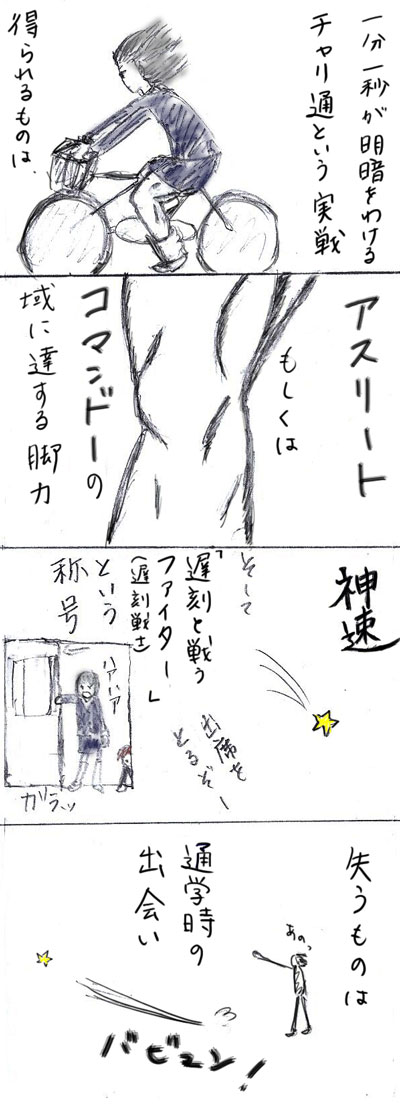 一分一秒が明暗をわける
チャリ通という実戦
得られるものは、
アスリート
もしくは
コマンドーの
域に達する脚力
神速
そして
「遅刻と戦う
ファイター」
(遅刻戦士)
という
称号
出席を
とるぞー
ハアハア
ガラッ
失うものは
通学時の
出会い
あのっ
バビューン!